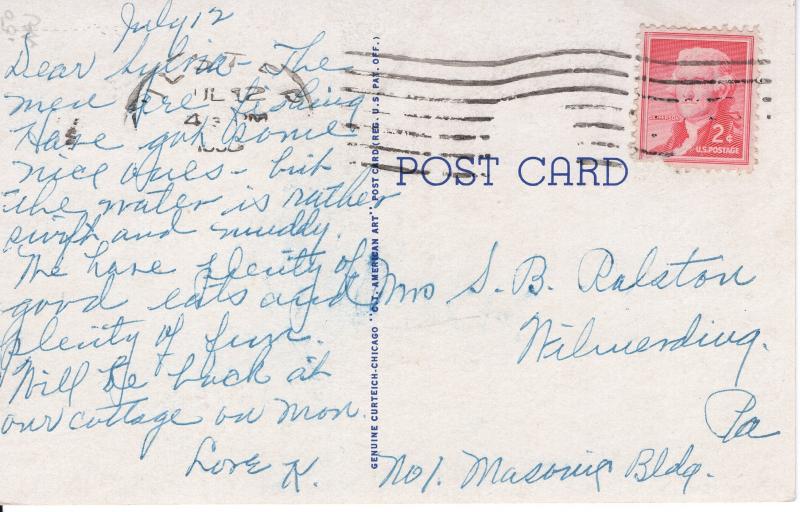 July 12
Dear Sylvia - The
men are fishing
Have got some
nice ones - but
the water is rather
swift and muddy.
We have plenty of
good eats and
plenty of fun.
Will be back at
our cottage on Mon.
Love K.
JUL 12
PM
GENUINE CURTEICH-CHICAGO "C.T. AMERICAN ART" POST CARD (REG. U.S. PAT. OFF.)
POST CARD
2¢
U.S. POSTAGE
Mrs S. B. Ralston
Wilmerding.
Pa
No 1. Masonic Bldg.